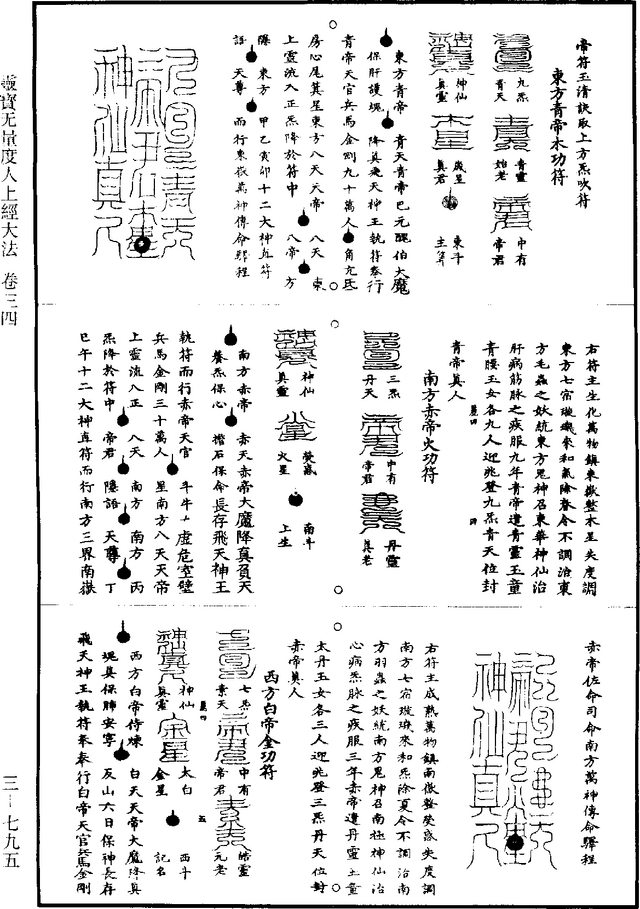 帝符玉清訣取上方炁吹符
東方青帝木功符
九炁青天
青靈始老
中有帝君
神仙真靈
歲星真君
東斗主筭
東方青帝
青天青帝巴元醜伯大魔
保肝護魂
降真飛天神王執符奉行
青帝天官兵馬金剛九十萬人
角亢氐
房心尾箕星東方八天天帝
八天
東
上靈流入正炁降於符中
八帝
方
隱
東方
甲乙寅卯十二大神直符
語
天尊
而行東嶽萬神傳命驛程
右符主生化萬物鎮東嶽整木星失度調
東方七宿璇璣參和氣除春令不調治東
方毛蟲之妖統東方鬼神召東華神仙治
肝病筋脉之疾服九年青帝遣青靈玉童
青腰玉女各九人迎兆登九炁青天位封
青帝真人
南方赤帝火功符
三炁丹天
中有帝君
丹靈真老
神仙真靈
熒惑火星
南斗上生
南方赤帝
赤天赤帝大魔降真負天
養炁保心
擔石保命長存飛天神王
執符而行赤帝天官
斗牛女虛危室壁
兵馬金剛三十萬人
星南方八天天帝
上靈流八正
八天
南方
南方
丙
炁降於符中
帝君
隱語
天尊
丁
巳午十二大神直符而行南方三界南嶽
赤帝佐命司命南方萬神傳命驛程
右符主成熟萬物鎮南嶽整熒惑失度調
南方七宿璇璣來和炁除夏令不調治南
方羽蟲之妖統南方鬼神召南極神仙治
心病炁脉之疾服三年赤帝遣丹靈玉童
太丹玉女各三人迎兆登三炁丹天位封
赤帝真人
西方白帝金功符
七炁素天
中有帝君
皓靈元老
神仙真靈
太白金星
西斗記名
西方白帝侍煉
白天天帝大魔降真
魄真保肺安寧
反山六日保神長存
飛天神王執符奉奉行白帝天官兵馬金剛
靈寶无量度人上經大法 卷三四
三—七九五